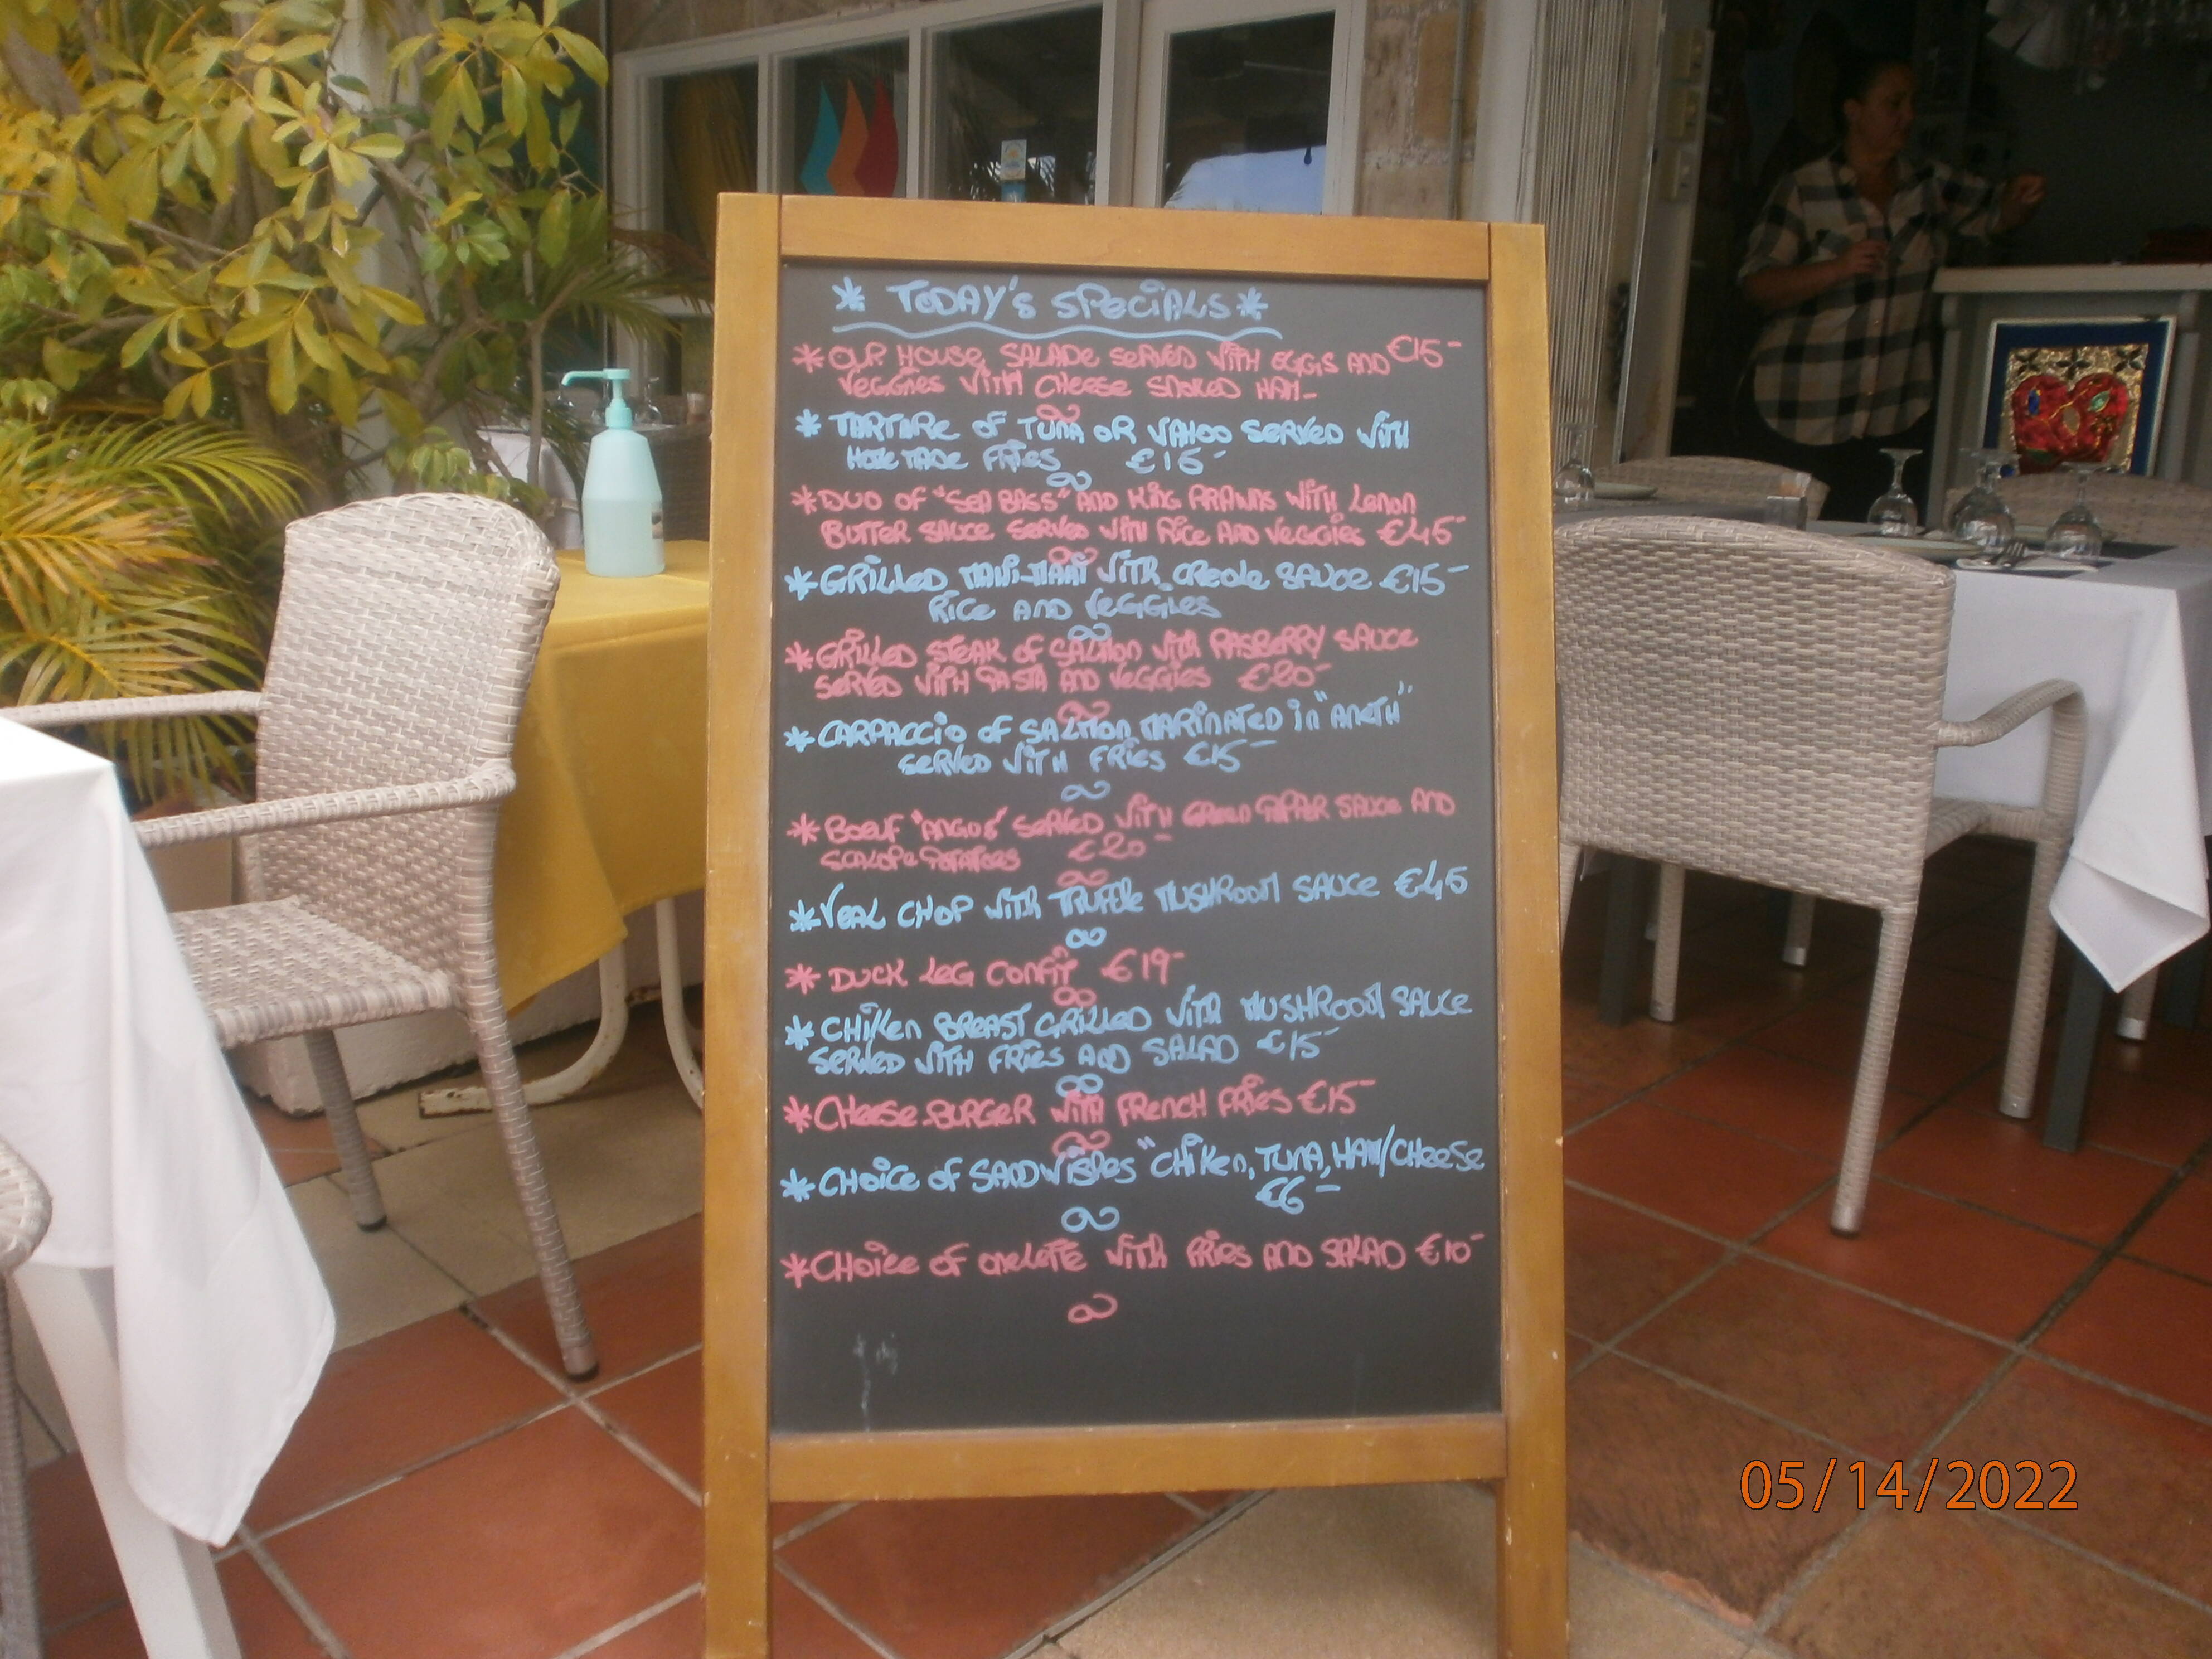 * TODAY'S SPECIALS *
* OUR HOUSE SALADE SERVED WITH EGGS AND €15-
VEGGIES WITH CHEESE SMOKED HAM-
* TARTARE OF TUNA OR WAHOO SERVED WITH
HOME MADE FRIES €16-
* DUO OF "SEA BASS" AND KING PRAWNS WITH LEMON
BUTTER SAUCE SERVED WITH RICE AND VEGGIES €45-
* GRILLED MAHI-MAHI WITH CREOLE SAUCE €15-
RICE AND VEGGIES
* GRILLED STEAK OF SALMON WITH RASBERRY SAUCE
SERVED WITH PASTA AND VEGGIES €20-
* CARPACCIO OF SALMON MARINATED IN "ANETH"
SERVED WITH FRIES €15-
* BOEUF "ANGUS" SERVED WITH GREEN PEPPER SAUCE AND
SCALOPE POTATOES €20-
* VEAL CHOP WITH TRUFFLE MUSHROOM SAUCE €45
* DUCK LEG CONFIT €19-
* CHIKEN BREAST GRILLED WITH MUSHROOM SAUCE
SERVED WITH FRIES AND SALAD €15-
* CHEESE-BURGER WITH FRENCH FRIES €15-
* CHOICE OF SANDWISHES "CHIKEN, TUNA, HAM/CHEESE
€6-
* CHOICE OF OMELETTE WITH FRIES AND SALAD €10-
05/14/2022